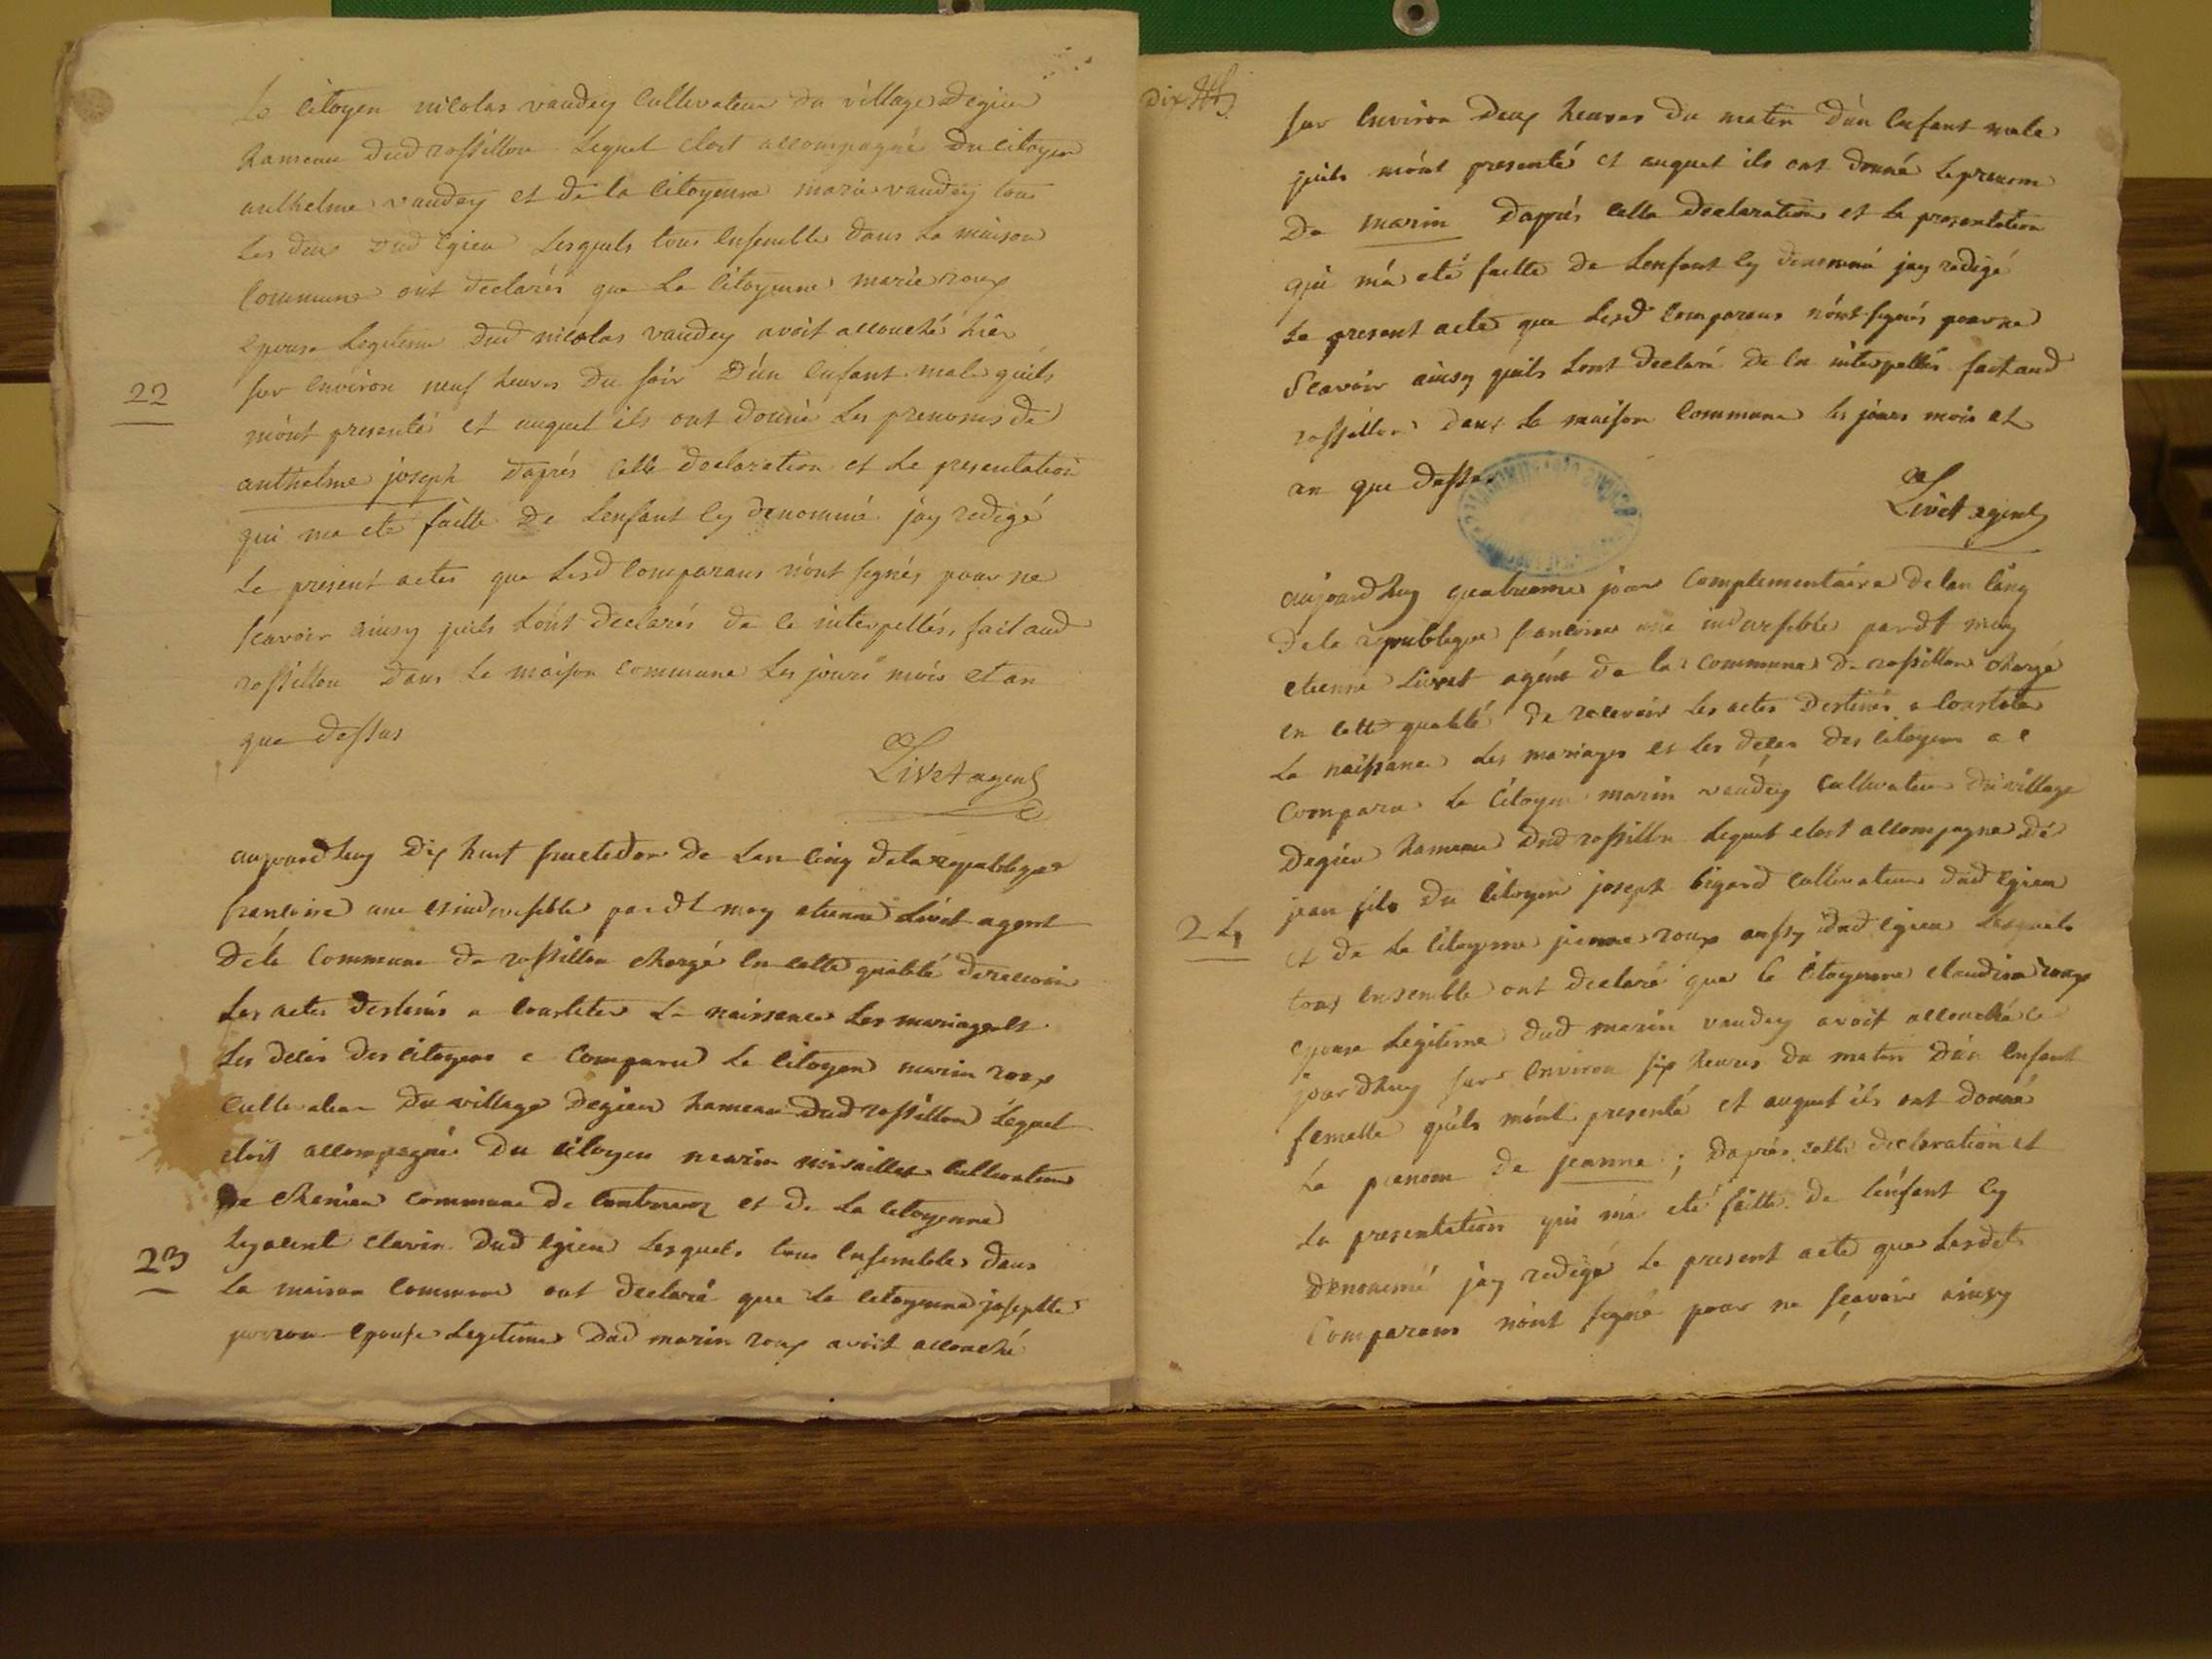 Le citoyen nicolas vaudey cultivateur du village degieu
hameau dud rossillon lequel etoit accompagné du citoyen
anthelme vaudey et de la citoyenne marie vaudey tous
les deux dud egieu lesquels tous ensemble dans la maison
commune ont declarés que la citoyenne marie roux
epouse legitime dud nicolas vaudey avoit accouché hier
22
sur environ neuf heures du soir d'un enfant male quils
m'ont presenté et auquel ils ont donné les prenoms de
anthelme joseph daprés cette declaration et la presentation
qui ma eté faitte de lenfant cy denommé jay redigé
le present actes que lesd comparans n'ont signés pour ne
scavoir ainsy quils l'ont declarés de ce interpellés, fait aud
rossillon dans la maison commune les jours mois et an
que dessus
Livet agent
aujourdhuy dix huit fructedor de lan cinq de la republique
francoise une et indivisible pardt moy etienne Livet agent
dela commune de rossillon chargé en cette qualité de recevoir
les actes destinés a constater la naissance les mariages et
les deces des citoyens a comparu le citoyen marin roux
cultivateur du village degieu hameau dud rossillon lequel
etoit accompagné du citoyen marin mirailler cultivateur
de chemieu commune de et de la citoyenne
clavin dud egieu lesquels tous ensembles dans
23
la maison commune ont declaré que la citoyenne josephte
epouse legitime dud marin roux avoit accouché
dix
sur environ deux heures du matin d'un enfant male
quils m'ont presenté et auquel ils ont donné le prenom
de marin daprés cette declaration et la presentation
qui m'a eté faitte de lenfant cy denommé jay redigé
le present acte que lesd comparans n'ont signés pour ne
scavoir ainsy quils lont declaré de ce interpellés fait aud
rossillon dans la maison commune les jours mois et
an que dessus
Livet agent
aujourdhuy quatrieme jour complementaire de lan cinq
de la republique francoise une indivisible pardt moy
etienne Livet agent de la commune de rossillon chargé
en cette qualité de recevoir les actes destinés a constater
la naissance les mariages et les deces des citoyens a
comparu le citoyen marin vaudey cultivateur du village
degieu hameau dud rossillon lequel etoit accompagné de
jean fils du citoyen joseph bigard cultivateur dud egieu
24
et de la citoyenne jeanne roux aussy dud egieu lesquels
tous ensemble ont declaré que la citoyenne claudine roux
epouse legitime dud marin vaudey avoit accouché ce
jourdhuy sur environ six heures du matin d'un enfant
femelle quils m'ont presenté et auquel ils ont donné
le prenom de jeanne ; daprés cette declaration et
la presentation qui ma eté faitte de lenfant cy
denommé jay redigé le present acte que lesdt
comparans n'ont signé pour ne scavoir ainsy